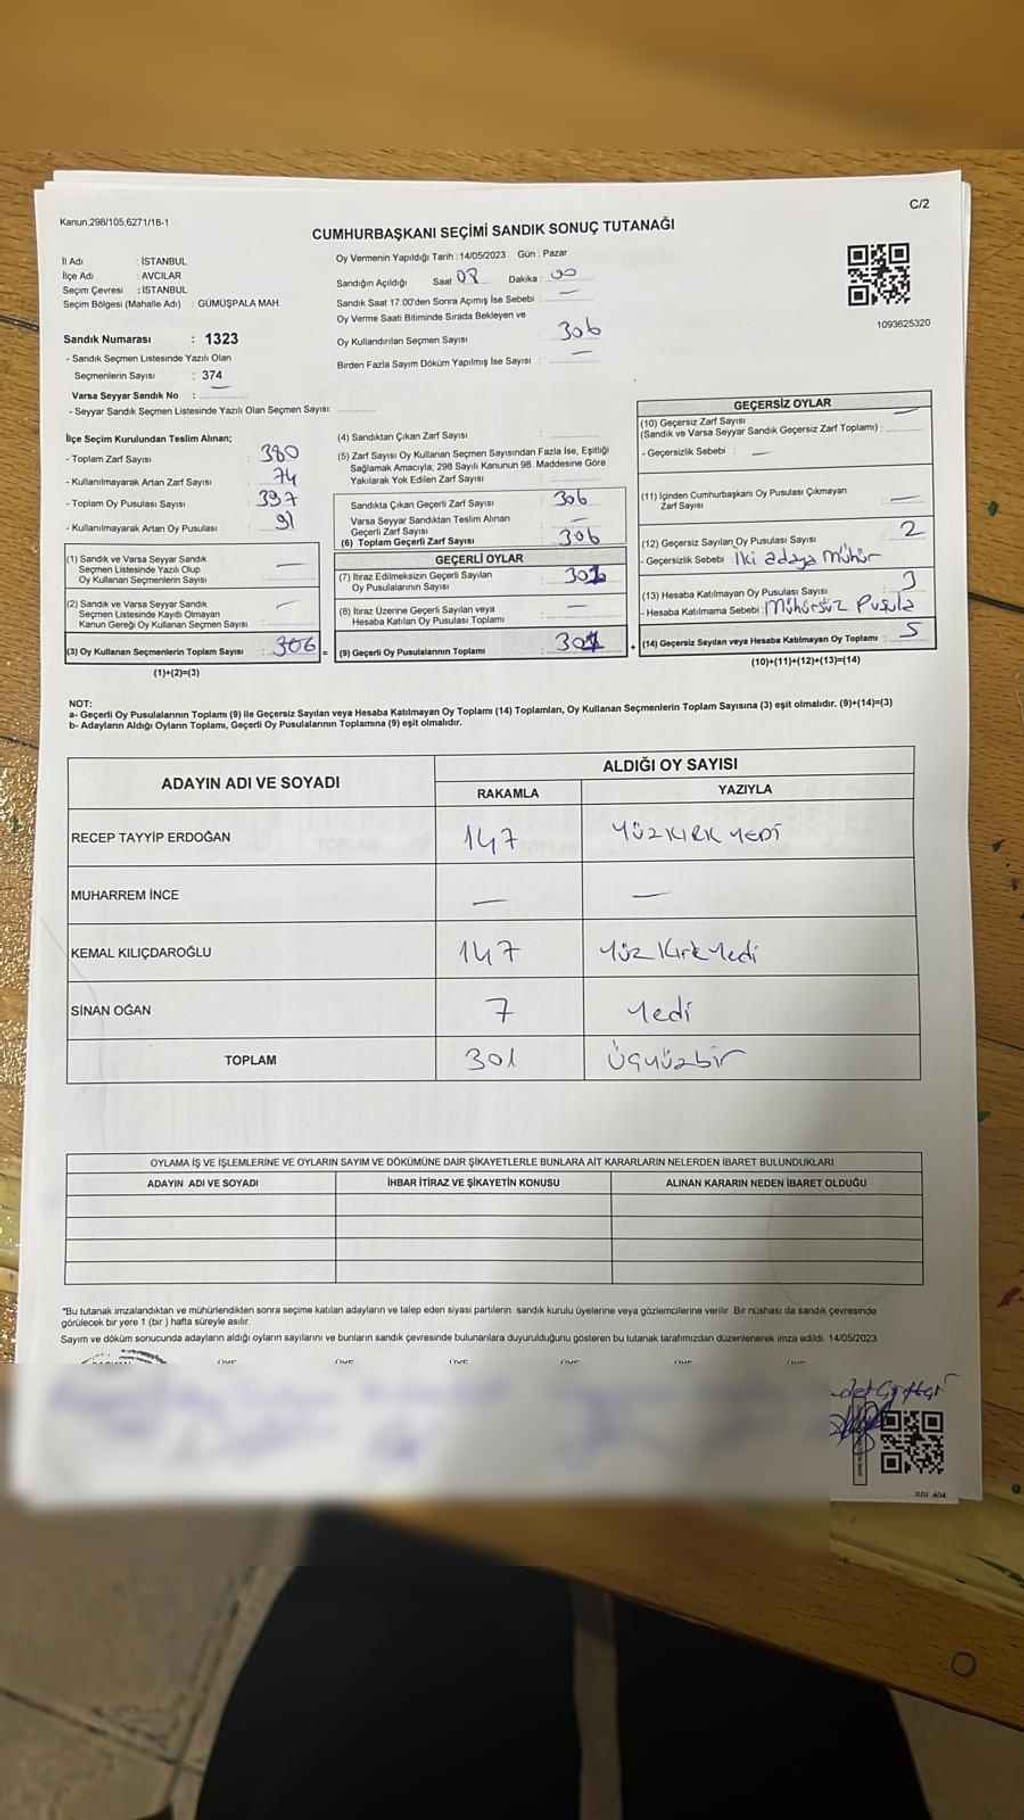 C/2
Kanun.298/105,6271/18-1
CUMHURBAŞKANI SEÇİMİ SANDIK SONUÇ TUTANAĞI
İl Adı : İSTANBUL
İlçe Adı : AVCILAR
Seçim Çevresi : İSTANBUL
Seçim Bölgesi (Mahalle Adı) : GÜMÜŞPALA MAH.
Sandık Numarası : 1323
- Sandık Seçmen Listesinde Yazılı Olan
Seçmenlerin Sayısı : 374
Varsa Seyyar Sandık No : —
- Seyyar Sandık Seçmen Listesinde Yazılı Olan Seçmen Sayısı:
Oy Vermenin Yapıldığı Tarih : 14/05/2023 Gün : Pazar
Sandığın Açıldığı Saat 08 Dakika 00
Sandık Saat 17.00'den Sonra Açımış İse Sebebi —
Oy Verme Saati Bitiminde Sırada Bekleyen ve
Oy Kullandırılan Seçmen Sayısı 306
Birden Fazla Sayım Döküm Yapılmış İse Sayısı : —
1093625320
İlçe Seçim Kurulundan Teslim Alınan;
- Toplam Zarf Sayısı 380
- Kullanılmayarak Artan Zarf Sayısı 74
- Toplam Oy Pusulası Sayısı 397
- Kullanılmayarak Artan Oy Pusulası 91
(1) Sandık ve Varsa Seyyar Sandık
Seçmen Listesinde Yazılı Olup
Oy Kullanan Seçmenlerin Sayısı —
(2) Sandık ve Varsa Seyyar Sandık
Seçmen Listesinde Kaydı Olmayan
Kanun Gereği Oy Kullanan Seçmen Sayısı —
(3) Oy Kullanan Seçmenlerin Toplam Sayısı : 306 =
(1)+(2)=(3)
(4) Sandıktan Çıkan Zarf Sayısı
(5) Zarf Sayısı Oy Kullanan Seçmen Sayısından Fazla İse, Eşitliği
Sağlamak Amacıyla, 298 Sayılı Kanunun 98. Maddesine Göre
Yakılarak Yok Edilen Zarf Sayısı
Sandıkta Çıkan Geçerli Zarf Sayısı 306
Varsa Seyyar Sandıktan Teslim Alınan
Geçerli Zarf Sayısı —
(6) Toplam Geçerli Zarf Sayısı 306
GEÇERLİ OYLAR
(7) İtiraz Edilmeksizin Geçerli Sayılan
Oy Pusulalarının Sayısı 301
(8) İtiraz Üzerine Geçerli Sayılan veya
Hesaba Katılan Oy Pusulası Toplamı —
(9) Geçerli Oy Pusulalarının Toplamı 301 +
GEÇERSİZ OYLAR
(10) Geçersiz Zarf Sayısı
(Sandık ve Varsa Seyyar Sandık Geçersiz Zarf Toplamı) : —
- Geçersizlik Sebebi : —
(11) İçinden Cumhurbaşkanı Oy Pusulası Çıkmayan
Zarf Sayısı —
(12) Geçersiz Sayılan Oy Pusulası Sayısı 2
- Geçersizlik Sebebi : İki adaya mühür
(13) Hesaba Katılmayan Oy Pusulası Sayısı 3
- Hesaba Katılmama Sebebi : Mühürsüz Pusula
(14) Geçersiz Sayılan veya Hesaba Katılmayan Oy Toplamı 5
(10)+(11)+(12)+(13)=(14)
NOT:
a- Geçerli Oy Pusulalarının Toplamı (9) ile Geçersiz Sayılan veya Hesaba Katılmayan Oy Toplamı (14) Toplamları, Oy Kullanan Seçmenlerin Toplam Sayısına (3) eşit olmalıdır. (9)+(14)=(3)
b- Adayların Aldığı Oyların Toplamı, Geçerli Oy Pusulalarının Toplamına (9) eşit olmalıdır.
ADAYIN ADI VE SOYADI
ALDIĞI OY SAYISI
RAKAMLA YAZIYLA
RECEP TAYYİP ERDOĞAN 147 YÜZKIRK YEDİ
MUHARREM İNCE — —
KEMAL KILIÇDAROĞLU 147 Yüz Kırk Yedi
SİNAN OĞAN 7 Yedi
TOPLAM 301 Üçyüzbir
OYLAMA İŞ VE İŞLEMLERİNE VE OYLARIN SAYIM VE DÖKÜMÜNE DAİR ŞİKAYETLERLE BUNLARA AİT KARARLARIN NELERDEN İBARET BULUNDUKLARI
ADAYIN ADI VE SOYADI İHBAR İTİRAZ VE ŞİKAYETİN KONUSU ALINAN KARARIN NEDEN İBARET OLDUĞU
*Bu tutanak imzalandıktan ve mühürlendikten sonra seçime katılan adayların ve talep eden siyasi partilerin sandık kurulu üyelerine veya gözlemcilerine verilir. Bir nüshası da sandık çevresinde
görülecek bir yere 1 (bir ) hafta süreyle asılır.
Sayım ve döküm sonucunda adayların aldığı oyların sayılarını ve bunların sandık çevresinde bulunanlara duyurulduğunu gösteren bu tutanak tarafımızdan düzenlenerek imza edildi. 14/05/2023